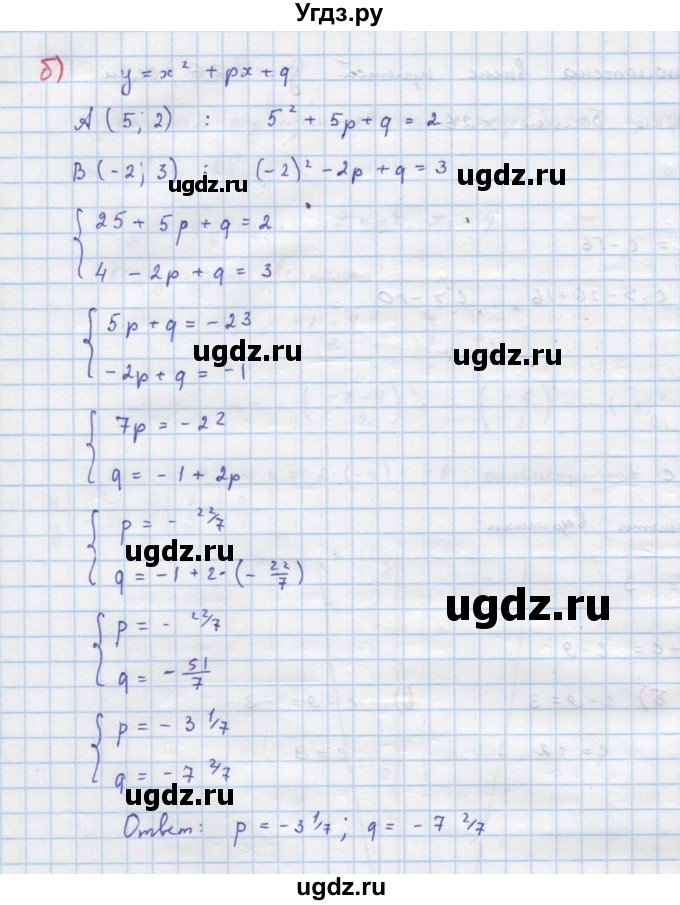 Угдз.ру
б) y = x² + px + q
A (5; 2) : 5² + 5p + q = 2
B (-2; 3) : (-2)² - 2p + q = 3
ugdz.ru ugdz.ru
25 + 5p + q = 2
4 - 2p + q = 3
5p + q = -23
ugdz.ru ugdz.ru
-2p + q = -1
7p = -22
q = -1 + 2p
p = - 22/7
ugdz.ru
q = -1 + 2·(- 22/7)
ugdz.ru
p = - 22/7
q = - 51/7
p = - 3 1/7
q = - 7 2/7
ugdz.ru
Ответ: p = -3 1/7; q = - 7 2/7
ugdz.ru